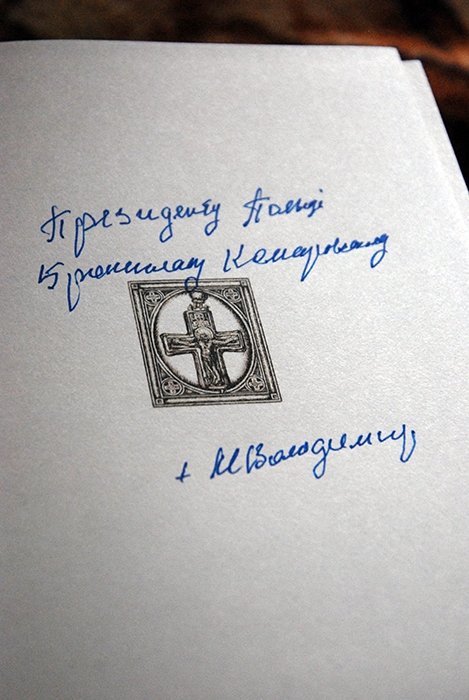 Президенту Польщі
Броніславу Комаровському
+ М Володимир